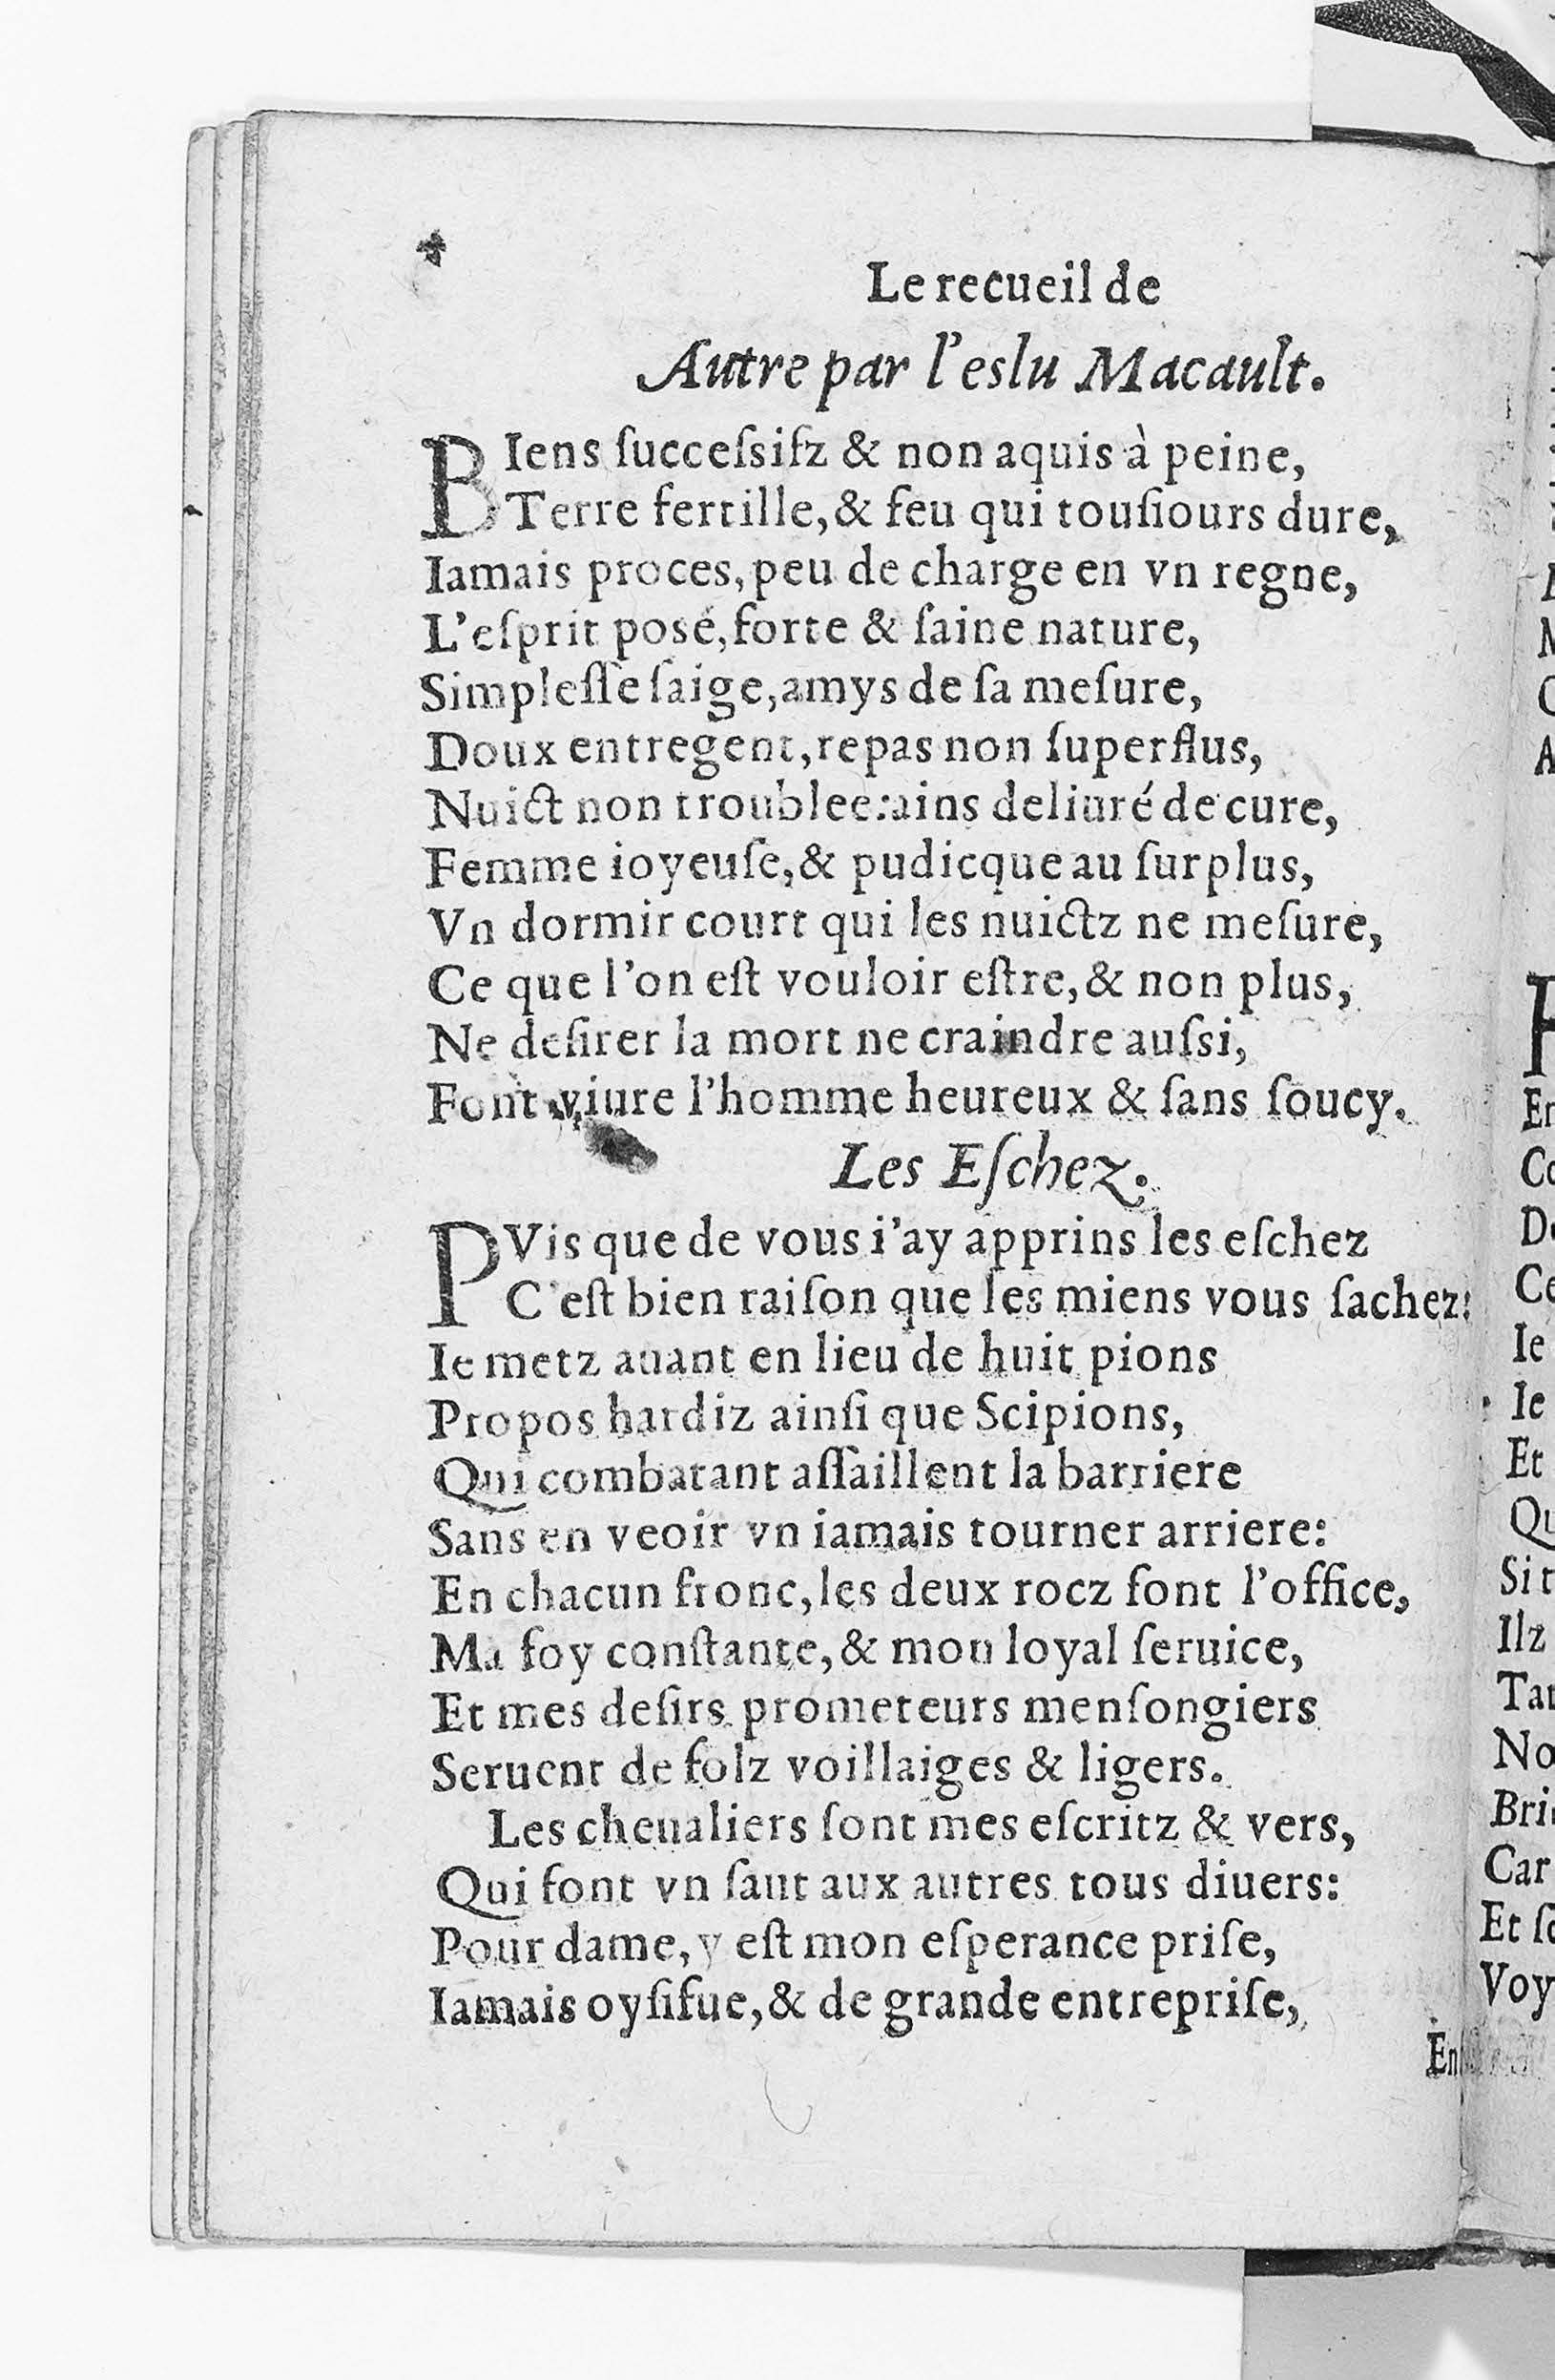 Le recueil de
Autre par l'eslu Macault.
BIens ſucceſsifz & non aquis à peine,
Terre fertille, & feu qui touſiours dure,
Iamais proces, peu de charge en vn regne,
L'eſprit posé, forte & ſaine nature,
Simpleſſe ſaige, amys de ſa meſure,
Doux entregent, repas non ſuperflus,
Nuict non troublee: ains deliuré de cure,
Femme ioyeuſe, & pudicque au ſurplus,
Vn dormir court qui les nuictz ne meſure,
Ce que l'on eſt vouloir eſtre, & non plus,
Ne deſirer la mort ne craindre auſsi,
Font viure l'homme heureux & ſans ſoucy.
Les Eſchez.
PVis que de vous i'ay apprins les eſchez
C'eſt bien raiſon que les miens vous ſachez:
Ie metz auant en lieu de huit pions
Propos hardiz ainſi que Scipions,
Qui combatant aſſaillent la barriere
Sans en veoir vn iamais tourner arriere:
En chacun fronc, les deux rocz font l'office,
Ma foy conſtante, & mon loyal ſeruice,
Et mes deſirs prometeurs menſongiers
Seruent de folz voillaiges & ligers.
Les cheualiers ſont mes eſcritz & vers,
Qui font vn ſaut aux autres tous diuers:
Pour dame, y eſt mon eſperance priſe,
Iamais oyſifue, & de grande entrepriſe,
En
Er
Ie
Ie
Et
Si t
Ilz
No
Car
Voy